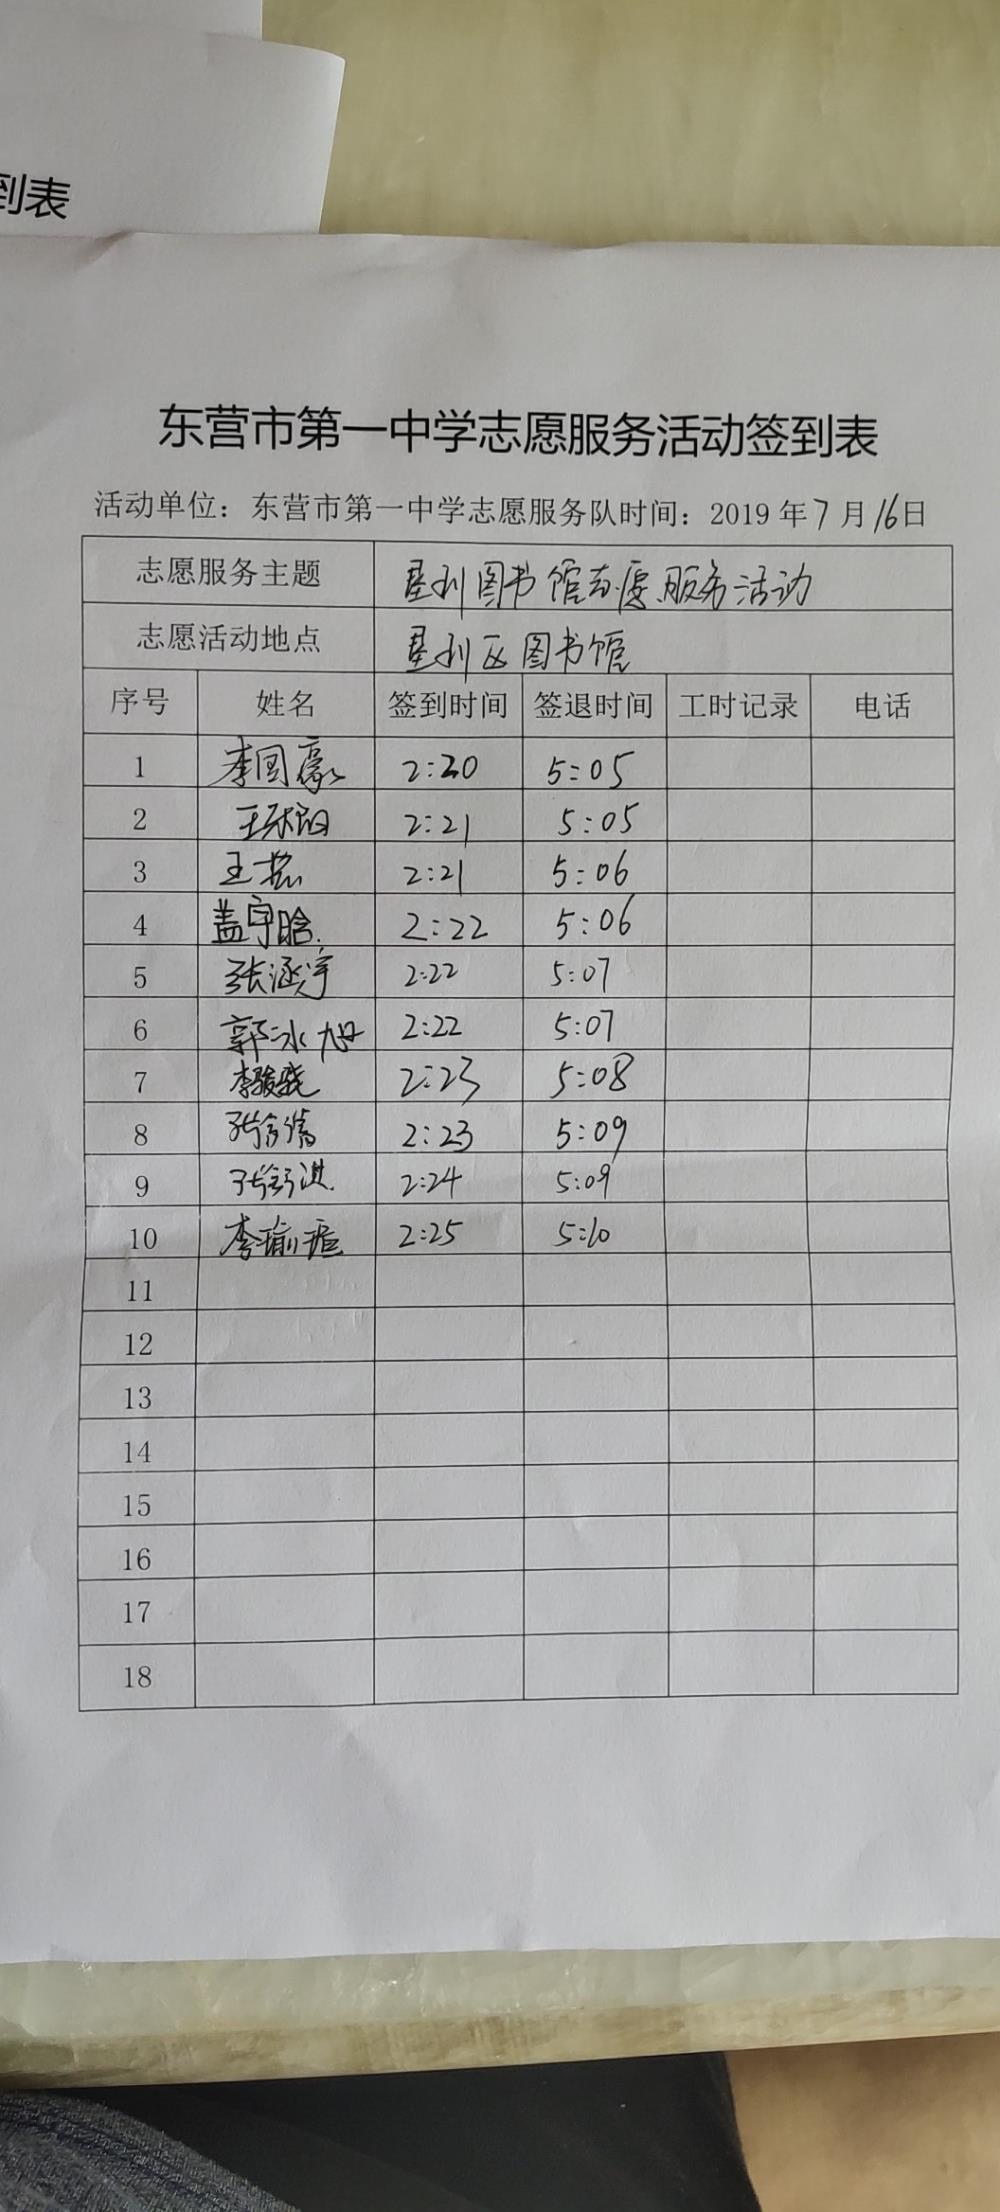 到表
东营市第一中学志愿服务活动签到表
活动单位：东营市第一中学志愿服务队时间：2019年7月16日
志愿服务主题 垦利图书馆志愿服务活动
志愿活动地点 垦利区图书馆
序号 姓名 签到时间 签退时间 工时记录 电话
1 李国豪 2:20 5:05
2 2:21 5:05
3 2:21 5:06
4 盖宇晗 2:22 5:06
5 张涵宇 2:22 5:07
6 郭冰旭 2:22 5:07
7 李骏骁 2:23 5:08
8 2:23 5:09
9 张舒淇 2:24 5:09
10 李瑜 2:25 5:10
11
12
13
14
15
16
17
18